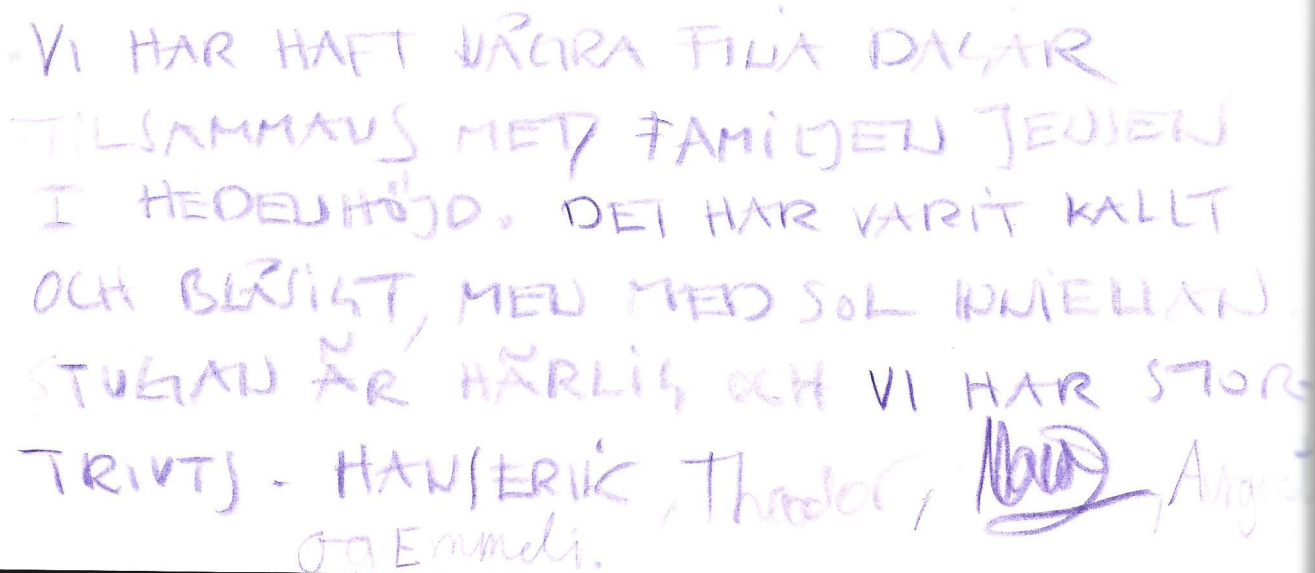 VI HAR HAFT NÅGRA FINA DAGAR
TILSAMMANS MED FAMILJEN JENSEN
I HEDENHÖJD. DET HAR VARIT KALLT
OCH BLÅSIGT, MEN MED SOL INNIELLAN
STUGAN ÄR HÄRLIG OCH VI HAR STOR-
TRIVTS - HANSERIK, Theodor,
og Emmeli.